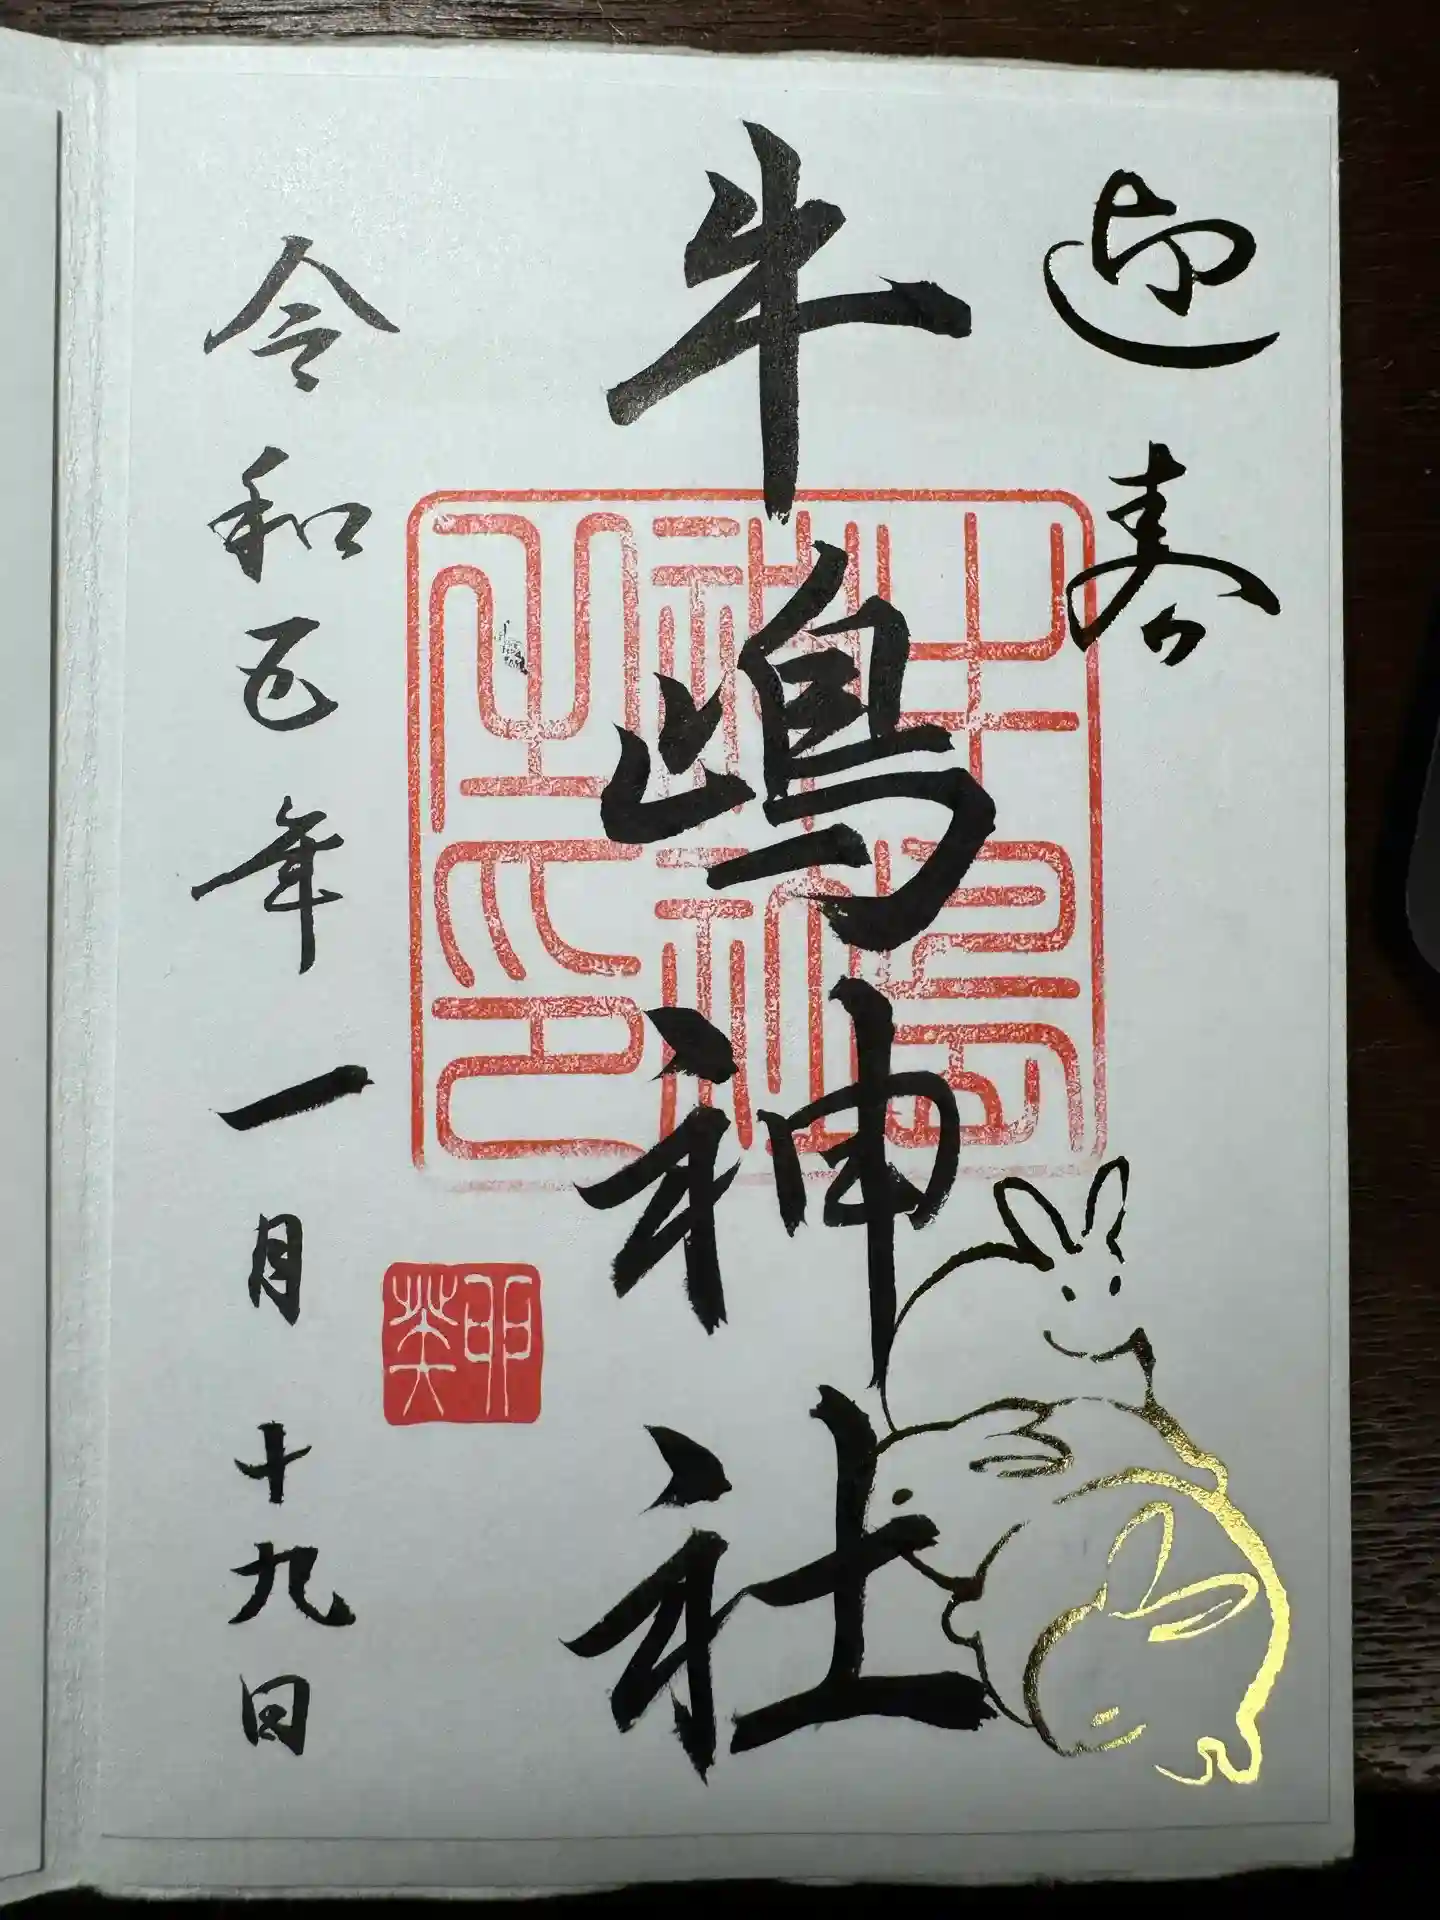 迎春
牛嶋神社
令和五年一月十九日
牛島
神社
之印
卯
癸